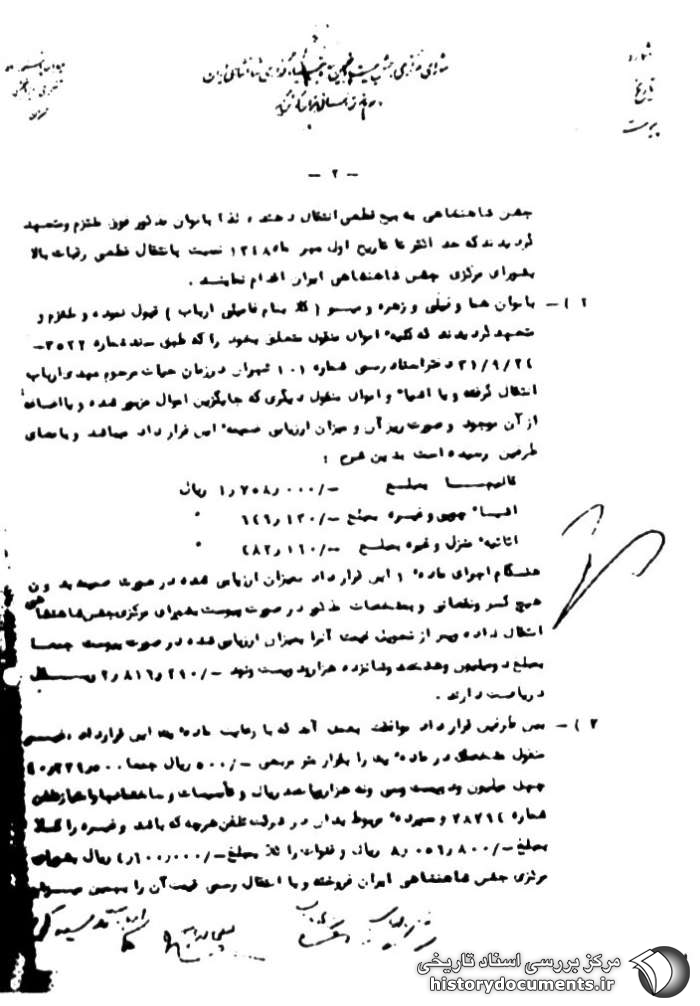 شماره
تاریخ
پیوست
شورای مرکزی جشن بیست و پنجمین سده بنیادگذاری شاهنشاهی ایران
- ۲ -
جشن شاهنشاهی به بیع قطعی انتقال دهند، لذا بانوان مذکور فوق ملتزم ومتعهد
گردیدند که حد اکثر تا تاریخ اول مهر ماه ۱۳۴۸ نسبت بانتقال قطعی رقبات بالا
بشورای مرکزی جشن شاهنشاهی ایران اقدام نمایند.
۲) - بانوان هما و لیلی و زهره و مینو ( کلا بنام فامیلی ارباب ) قبول نموده و ملتزم و
متعهد گردیدند که کلیه اموال منقول متعلق بخود را که طبق سند شماره ۳۵۲۲-
۳۱/۹/۲۴ دفتر اسناد رسمی شماره ۱۰۱ تهران در زمان حیات مرحوم مهدی ارباب
انتقال گرفته و یا اشیاء و اموال منقول دیگری که جایگزین اموال مزبور شده و یا اضافه
از آن موجود و صورت ریز آن و میزان ارزیابی ضمیمه این قرار داد میباشد و بامضای
طرفین رسیده است بدین شرح :
قالیها بمبلغ -/۱٫۷۵۸٫۰۰۰ ریال
اشیاء چوبی و غیره بمبلغ -/
اثاثیه منزل و غیره بمبلغ -/
هنگام اجرای ماده ۱ این قرار داد بمیزان ارزیابی شده در صورت ضمیمه بدون
هیچ کسر ونقصانی و بمشخصات مذکور در صورت پیوست بشورای مرکزی جشن شاهنشاهی
انتقال داده و پس از تحویل قیمت آنرا بمیزان ارزیابی شده در صورت پیوست جمعا
بمبلغ دو میلیون وهشتصد وشانزده هزار ودویست ونود -/۲٫۸۱۶٫۲۹۰ ریال
دریافت دارند.
۳) - بین طرفین قرار داد موافقت بعمل آمد که با رعایت ماده این قرارداد
منقول مشخصه در ماده یک را بقرار متر مربعی -/۵۰۰ ریال جمعا
چهل میلیون ودویست وسی ونه هزار ریال و تأسیسات و ساختمانها را
شماره ۲۸۲۱۴ و سپرده مربوط بدان در شرکت تلفن هرچه که باشد و غیره را کلا
بمبلغ -/۸٫۰۵۶٫۸۰۰ ریال و قنوات را کلا بمبلغ -/۴٫۱۰۰٫۰۰۰ ریال بشورای
مرکزی جشن شاهنشاهی ایران فروخته و با انتقال رسمی قیمت آن را بهمین میزان
مرکز بررسی اسناد تاریخی
historydocuments.ir